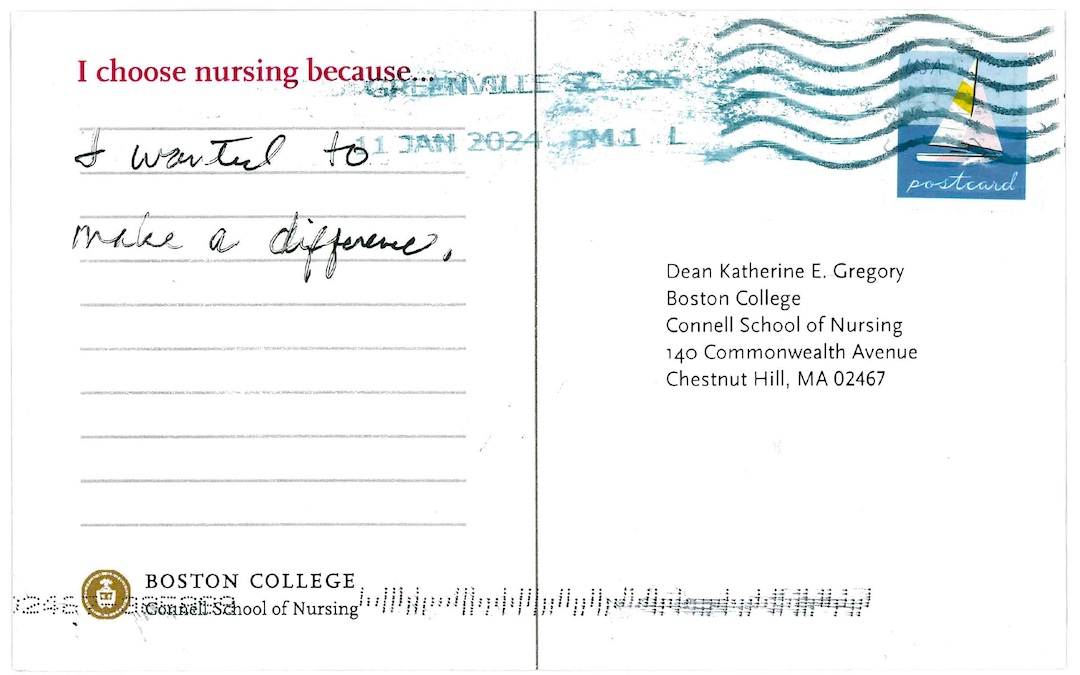 I choose nursing because...
I wanted to
make a difference.
GREENVILLE SC 296
11 JAN 2024 PM 1 L
USA
postcard
Dean Katherine E. Gregory
Boston College
Connell School of Nursing
140 Commonwealth Avenue
Chestnut Hill, MA 02467
BOSTON COLLEGE
Connell School of Nursing